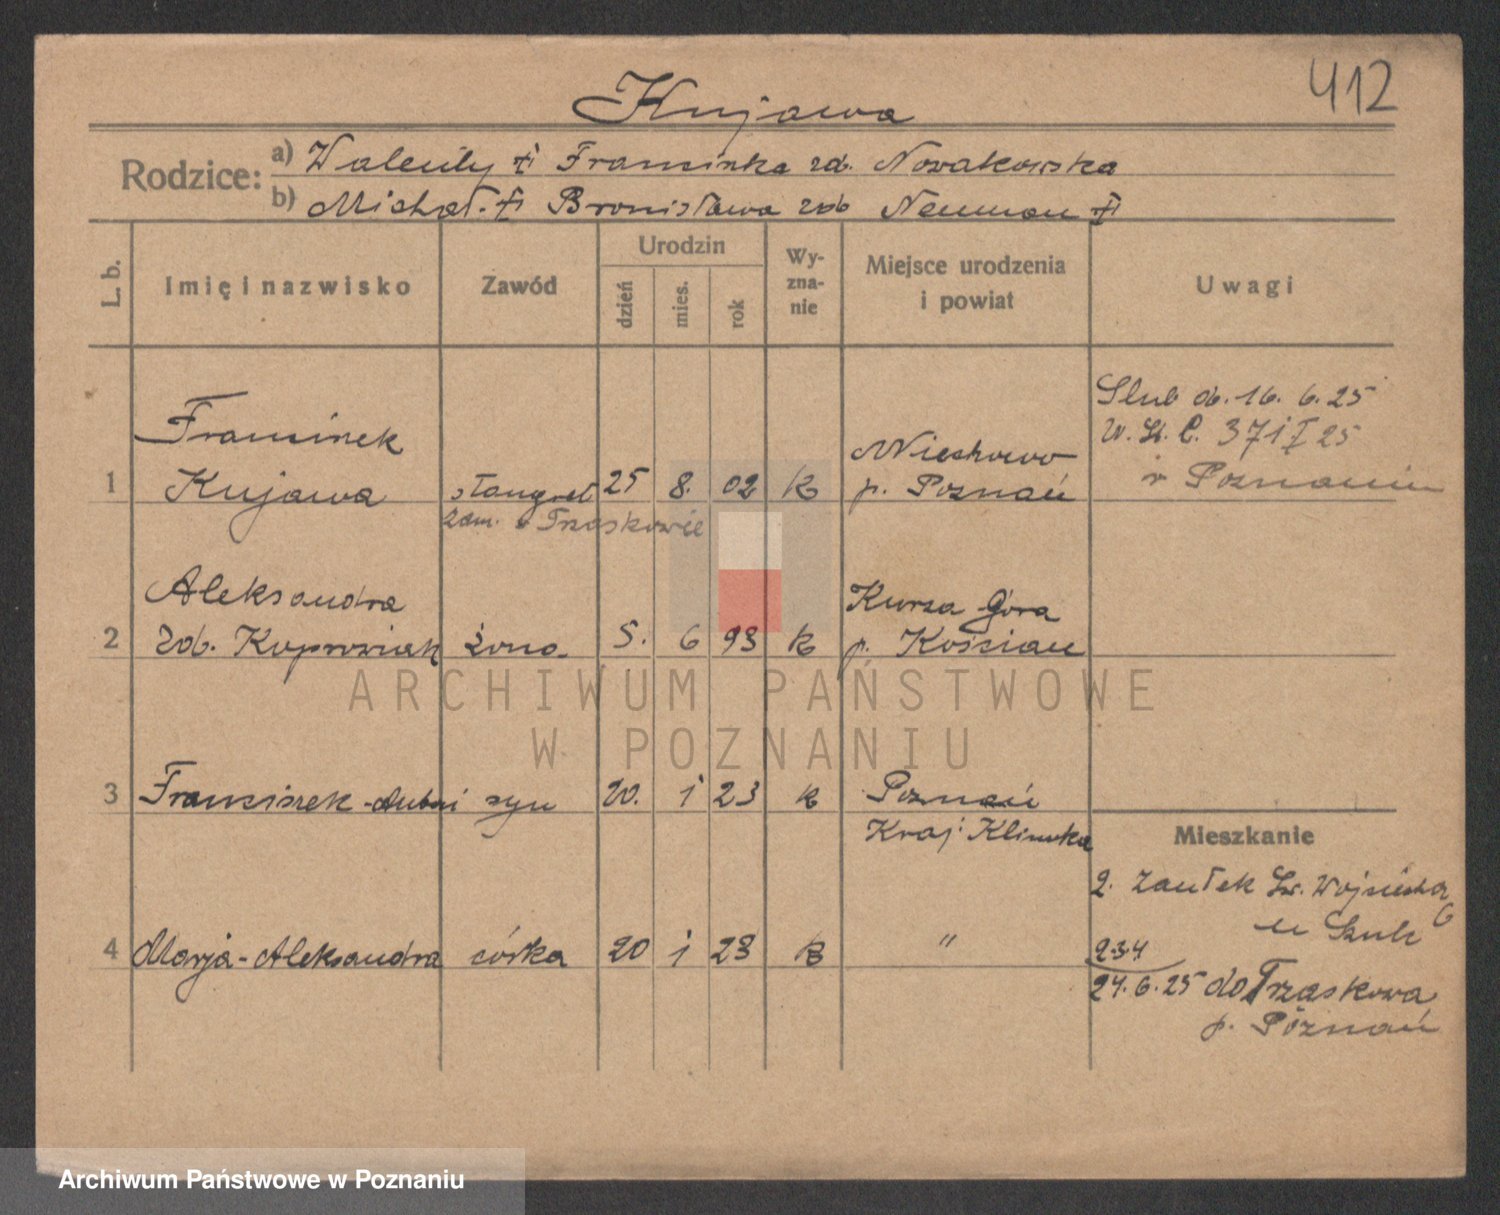 412
Kujawa
Rodzice: a) Walenty † Franciszka zd. Nowakowska
b) Michał † Bronisława zd. Neuman †
L. b. Imię i nazwisko Zawód Urodzin dzień mies. rok Wy-zna-nie Miejsce urodzenia i powiat Uwagi
Slub d. 16. 6. 25
371 I 25
w Poznaniu
Franciszek
1 Kujawa stangret 25 8. 02 k p. Poznań
zam. w Trzaskowie
Aleksandra Kurza Góra
2 zd. Koprowiak żona 5. 6 93 k p. Kościan
ARCHIWUM PAŃSTWOWE
W POZNANIU
3 Franciszek-Antoni syn 20. 1 23 k Poznań
Mieszkanie
2. Zaułek Św. Wojciecha 6
u Szulc
4 Marja-Aleksandra córka 20 1 23 k "
234
24.6.25 do Trzaskowa
p. Poznań
Archiwum Państwowe w Poznaniu